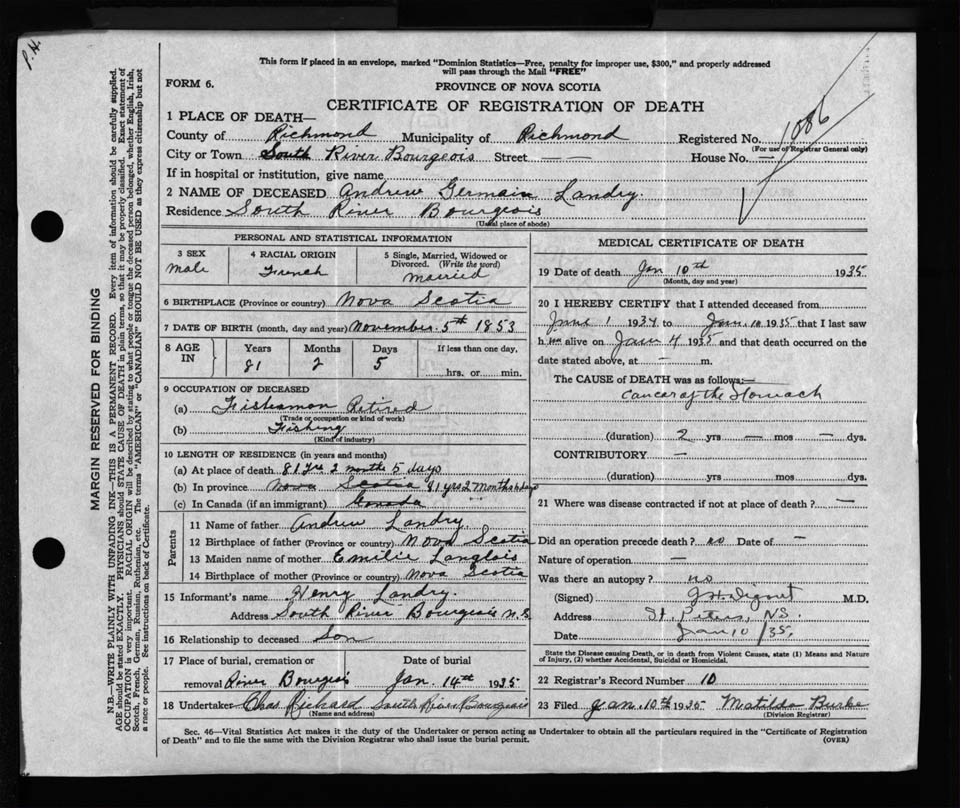 P.H.
This form if placed in an envelope, marked "Dominion Statistics—Free, penalty for improper use, $300," and properly addressed
will pass through the Mail "FREE"
FORM 6.
PROVINCE OF NOVA SCOTIA
CERTIFICATE OF REGISTRATION OF DEATH
1086
1 PLACE OF DEATH—
County of Richmond Municipality of Richmond Registered No.
(For use of Registrar General only)
City or Town South River Bourgeois Street — — House No. —
If in hospital or institution, give name
2 NAME OF DECEASED Andrew Germain Landry
Residence South River Bourgeois
(Usual place of abode)
MARGIN RESERVED FOR BINDING
N.B.—WRITE PLAINLY WITH UNFADING INK—THIS IS A PERMANENT RECORD. Every item of information should be carefully supplied.
AGE should be stated EXACTLY. PHYSICIANS should STATE CAUSE OF DEATH in plain terms, so that it may be properly classified. Exact statement of
OCCUPATION is very important. RACIAL ORIGIN will be described by stating to what people or tongue the deceased person belonged, whether English, Irish,
Scotch, French, German, Russian, Ruthenian, etc. The terms "AMERICAN" or "CANADIAN" SHOULD NOT BE USED as they express citizenship but not
a race or people. See instructions on back of Certificate.
PERSONAL AND STATISTICAL INFORMATION
3 SEX
Male
4 RACIAL ORIGIN
French
5 Single, Married, Widowed or
Divorced. (Write the word)
Married
6 BIRTHPLACE (Province or country) Nova Scotia
7 DATE OF BIRTH (month, day and year) November. 5th 1853
8 AGE IN
Years Months Days If less than one day,
81 2 5
hrs. or min.
9 OCCUPATION OF DECEASED
(a) Fisherman Retired
(Trade or occupation or kind of work)
(b) Fishing
(Kind of industry)
10 LENGTH OF RESIDENCE (in years and months)
(a) At place of death 81 yrs 2 months 5 days
(b) In province Nova Scotia 81 yrs 2 Months 5 days
(c) In Canada (if an immigrant) Canada
Parents
11 Name of father Andrew Landry.
12 Birthplace of father (Province or country) Nova Scotia
13 Maiden name of mother Emilie Langlois
14 Birthplace of mother (Province or country) Nova Scotia
15 Informant's name Henry Landry.
Address South River Bourgeois N.S
16 Relationship to deceased Son
17 Place of burial, cremation or Date of burial
removal River Bourgeois Jan. 14th 1935
18 Undertaker Chas. Richard South River Bourgeois
(Name and address)
MEDICAL CERTIFICATE OF DEATH
19 Date of death Jan 10th 1935
(Month, day and year)
20 I HEREBY CERTIFY that I attended deceased from
June 1 1934 to Jan. 10 1935 that I last saw
him alive on Jan 4 1935 and that death occurred on the
date stated above, at — m.
The CAUSE of DEATH was as follows:—
Cancer of the Stomach
(duration) 2 yrs — mos — dys.
CONTRIBUTORY —
(duration) yrs mos dys.
21 Where was disease contracted if not at place of death? —
Did an operation precede death? no Date of —
Nature of operation —
Was there an autopsy? no
(Signed) M.D.
Address St. Peters, NS.
Date Jan 10/35.
State the Disease causing Death, or in death from Violent Causes, state (1) Means and Nature
of Injury, (2) whether Accidental, Suicidal or Homicidal.
22 Registrar's Record Number 10
23 Filed Jan. 10th 1935 Matilda Burke
(Division Registrar)
Sec. 46—Vital Statistics Act makes it the duty of the Undertaker or person acting as Undertaker to obtain all the particulars required in the "Certificate of Registration
of Death" and to file the same with the Division Registrar who shall issue the burial permit. (OVER)